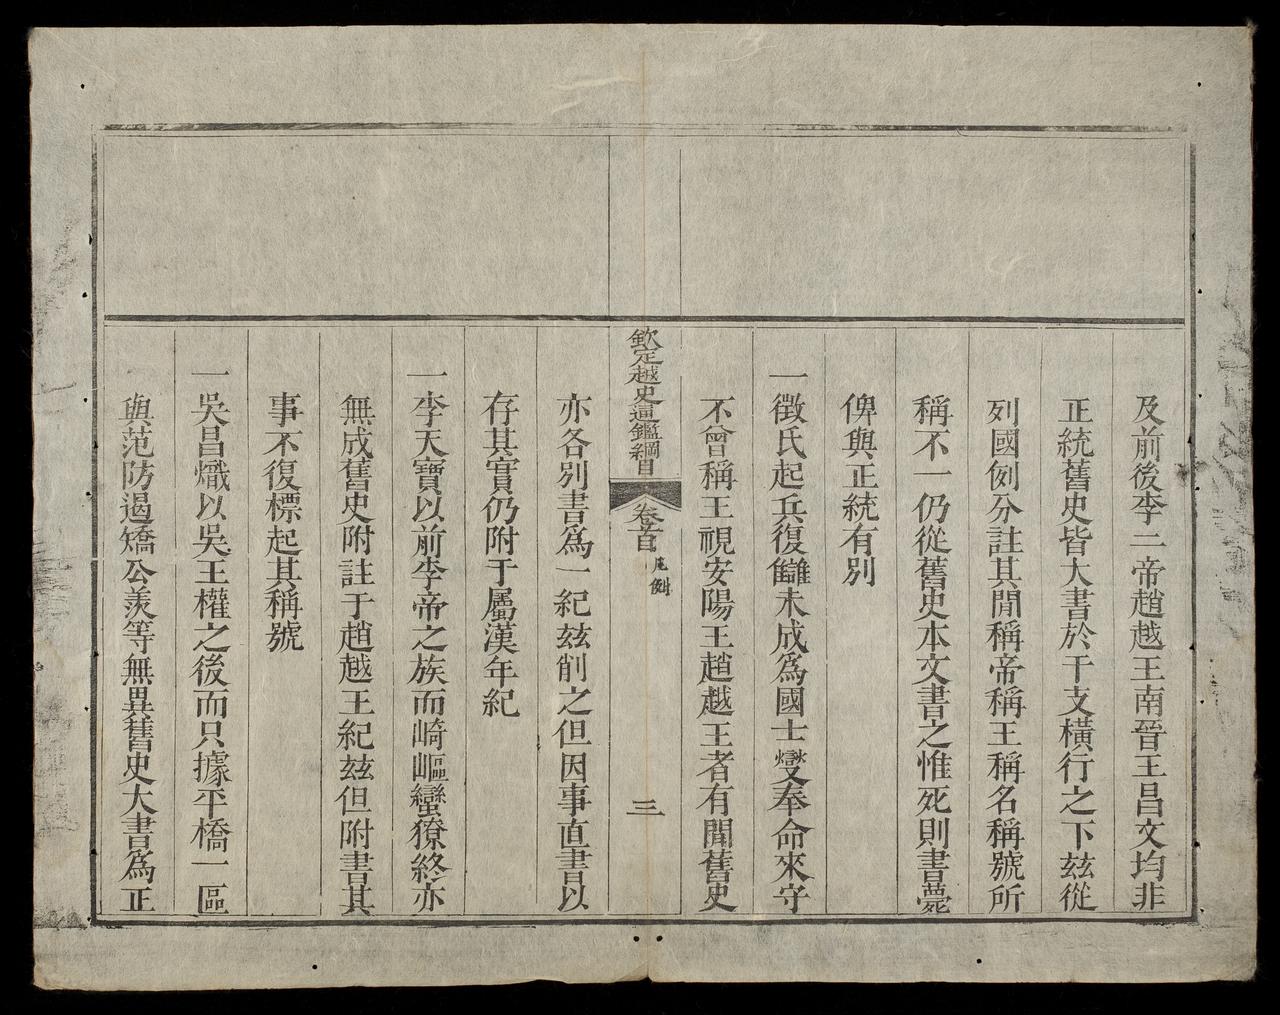 及前後李二帝趙越王南晉王昌文均非
正統舊史皆大書於干支橫行之下玆從
列國例分註其閒稱帝稱王稱名稱號所
稱不一仍從舊史本文書之惟死則書薨
俾與正統有別
一徵氏起兵復讎未成爲國士燮奉命來守
不曾稱王視安陽王趙越王者有閒舊史
欽定越史通鑑綱目
卷首
凡例
三
亦各別書爲一紀玆削之但因事直書以
存其實仍附于屬漢年紀
一李天寶以前李帝之族而崎嶇蠻獠終亦
無成舊史附註于趙越王紀玆但附書其
事不復標起其稱號
一吳昌熾以吳王權之後而只據平橋一區
與范防遏矯公羨等無異舊史大書爲正